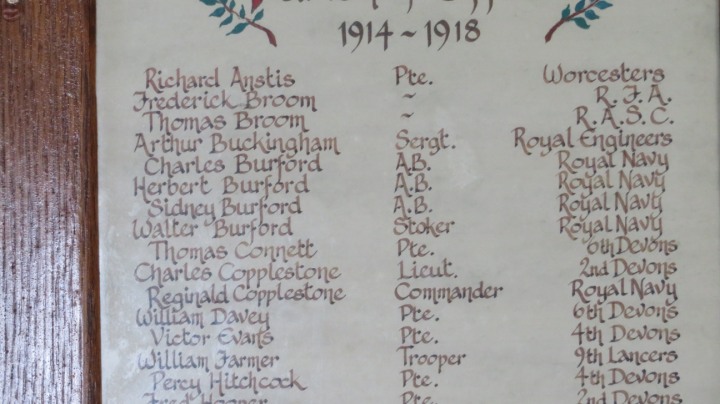 1914 ~ 1918
Richard Anstis Pte. Worcesters
Frederick Broom ~ R.F.A.
Thomas Broom ~ R.A.S.C.
Arthur Buckingham Sergt. Royal Engineers
Charles Burford A.B. Royal Navy
Herbert Burford A.B. Royal Navy
Sidney Burford A.B. Royal Navy
Walter Burford Stoker Royal Navy
Thomas Connett Pte. 6th Devons
Charles Copplestone Lieut. 2nd Devons
Reginald Copplestone Commander Royal Navy
William Davey Pte. 6th Devons
Victor Evans Pte. 4th Devons
William Farmer Trooper 9th Lancers
Percy Hitchcock Pte. 4th Devons
Fred Hooper Pte. 2nd Devons